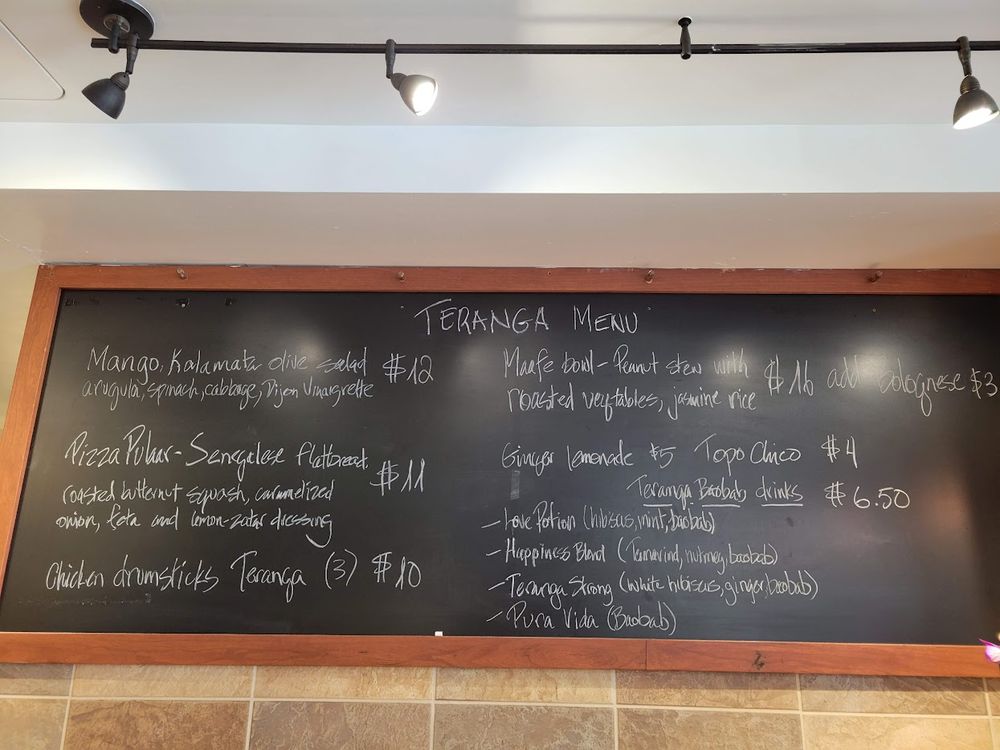 TERANGA MENU
Mango, Kalamata olive salad $12
arugula, spinach, cabbage, Dijon Vinaigrette
Pizza Pulaar - Senegalese flatbread,
roasted butternut squash, caramelized $11
onion, feta and lemon-zatar dressing
Chicken drumsticks Teranga (3) $10
Maafe bowl - Peanut stew with $16 add bolognese $3
roasted vegtables, jasmine rice
Ginger lemonade $5 Topo Chico $4
Teranga Baobab drinks $6.50
- Love Potion (hibiscus, mint, baobab)
- Happiness Blend (Tamarind, nutmeg, baobab)
- Teranga Strong (white hibiscus, ginger, baobab)
- Pura Vida (Baobab)